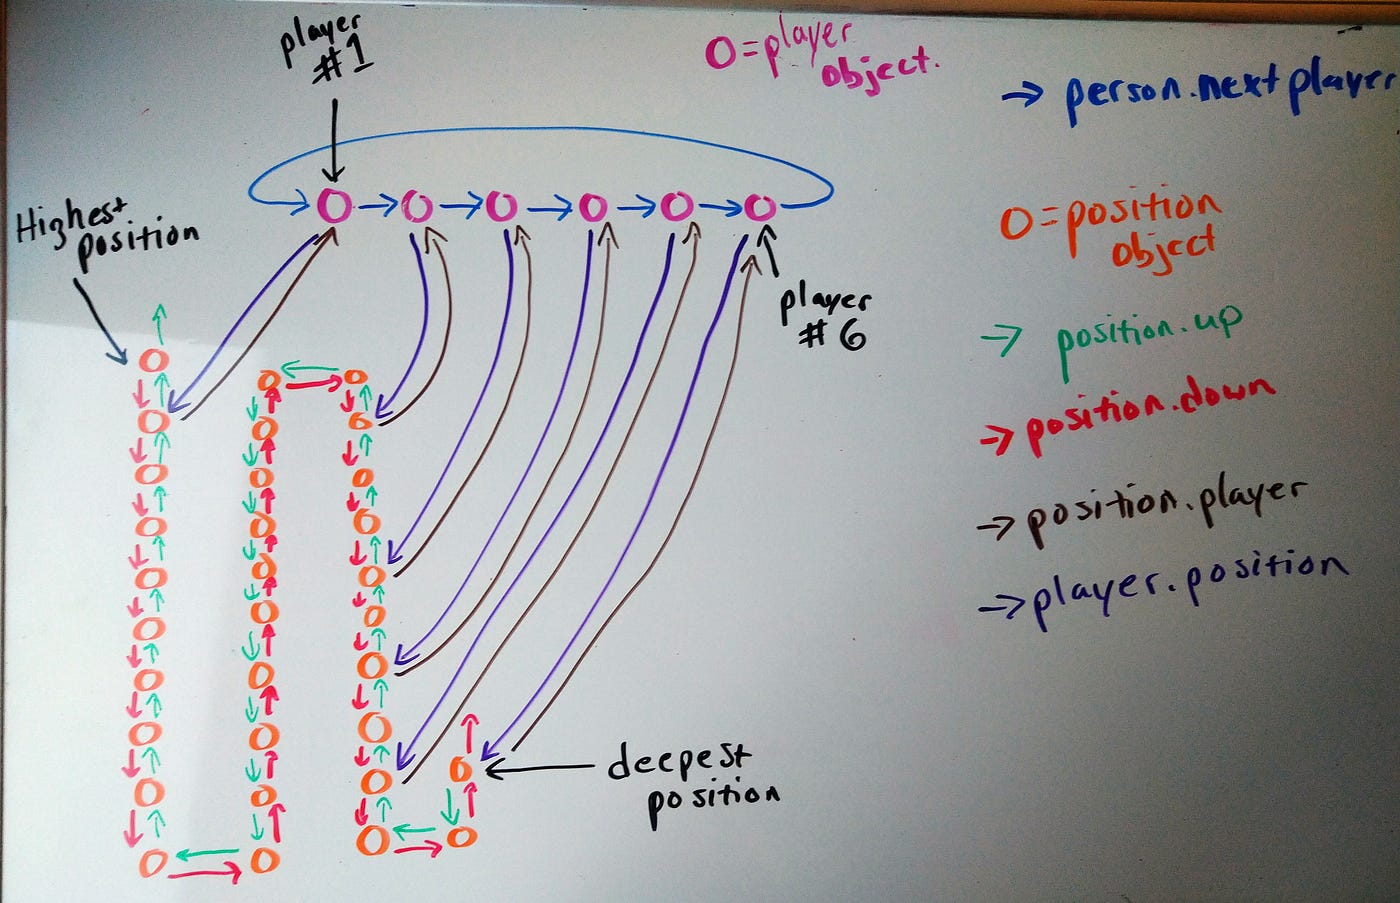 player
#1
O=player
object.
→ person.nextplayer
Highest
position
O=position
object
player
#6
→ position.up
→ position.down
→ position.player
→ player.position
deepest
position